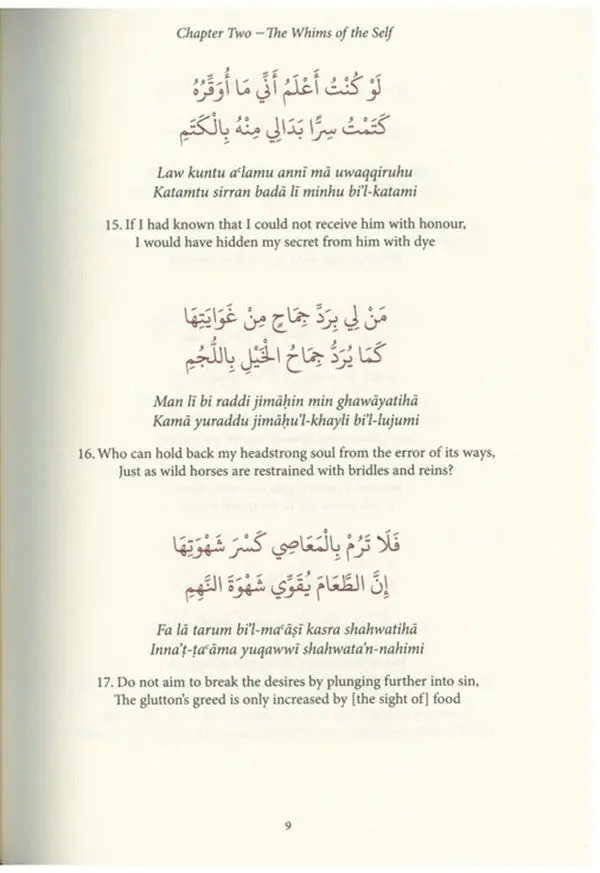 Chapter Two – The Whims of the Self
لَوْ كُنْتُ أَعْلَمُ أَنِّي مَا أُوَقِّرُهُ
كَتَمْتُ سِرًّا بَدَالِي مِنْهُ بِالْكَتَمِ
Law kuntu aʿlamu annī mā uwaqqiruhu
Katamtu sirran badā lī minhu bi'l-katami
15. If I had known that I could not receive him with honour,
I would have hidden my secret from him with dye
مَنْ لِي بِرَدِّ جِمَاحٍ مِنْ غَوَايَتِهَا
كَمَا يُرَدُّ جِمَاحُ الْخَيْلِ بِاللُّجُمِ
Man lī bi raddi jimāḥin min ghawāyatihā
Kamā yuraddu jimāḥu'l-khayli bi'l-lujumi
16. Who can hold back my headstrong soul from the error of its ways,
Just as wild horses are restrained with bridles and reins?
فَلَا تَرُمْ بِالْمَعَاصِي كَسْرَ شَهْوَتِهَا
إِنَّ الطَّعَامَ يُقَوِّي شَهْوَةَ النَّهِمِ
Fa lā tarum bi'l-maʿāṣī kasra shahwatihā
Inna'ṭ-ṭaʿāma yuqawwī shahwata'n-nahimi
17. Do not aim to break the desires by plunging further into sin,
The glutton's greed is only increased by [the sight of] food
9